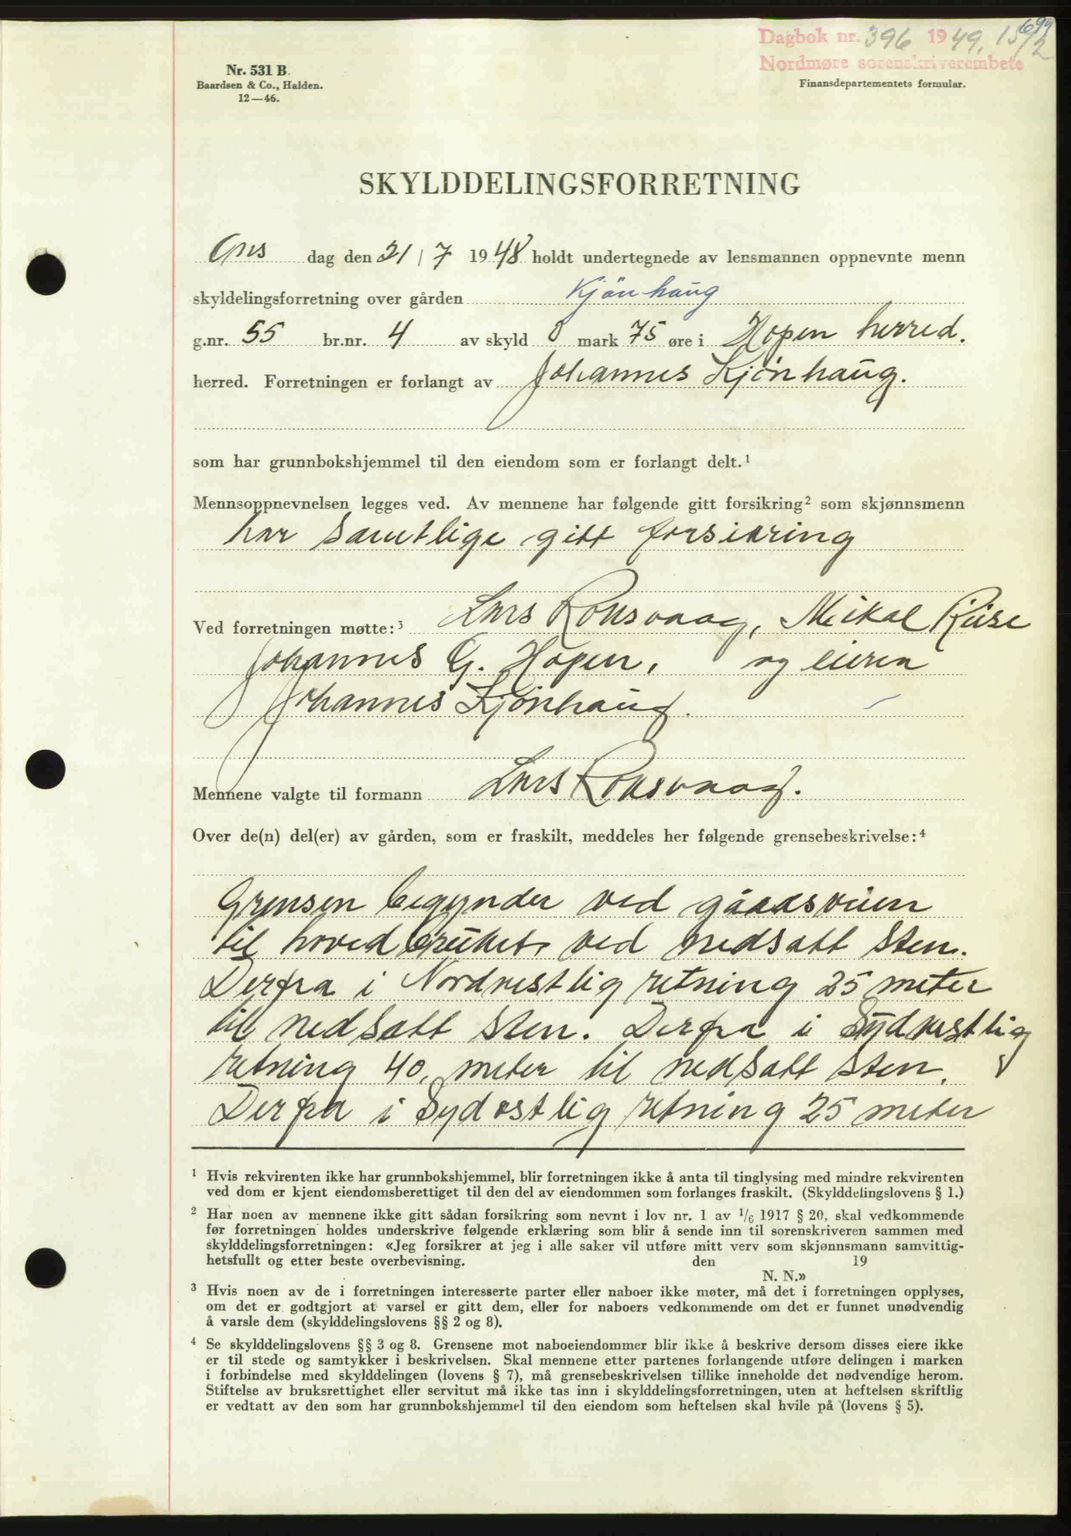 699
Dagbok nr. 396 1949, 15/2
Nordmøre sorenskriverembete
Nr. 531 B.
Baardsen & Co., Halden.
12—46.
Finansdepartementets formular.
SKYLDDELINGSFORRETNING
Ons dag den 21/7 1948 holdt undertegnede av lensmannen oppnevnte menn
skyldelingsforretning over gården Kjönhaug
g.nr. 55 br.nr. 4 av skyld 0 mark 75 øre i Hopen herred.
herred. Forretningen er forlangt av Johannes Kjønhaug.
som har grunnbokshjemmel til den eiendom som er forlangt delt.¹
Mennsoppnevnelsen legges ved. Av mennene har følgende gitt forsikring² som skjønnsmenn
har samtlige gitt forsikring
Ved forretningen møtte:³ Lars Roksvaag, Mikal Riise
Johannes G. Hopen, og eieren
Johannes Kjønhaug.
Mennene valgte til formann Lars Roksvaag.
Over de(n) del(er) av gården, som er fraskilt, meddeles her følgende grensebeskrivelse:⁴
Grensen begynder ved gaardsveien
til hovedbruket, ved nedsatt sten.
Derfra i Nordvestlig retning 25 meter
til nedsatt sten. Derfra i Sydvestlig
retning 40, meter til nedsatt sten.
Derfra i Sydøstlig retning 25 meter
¹ Hvis rekvirenten ikke har grunnbokshjemmel, blir forretningen ikke å anta til tinglysing med mindre rekvirenten
ved dom er kjent eiendomsberettiget til den del av eiendommen som forlanges fraskilt. (Skylddelingslovens § 1.)
² Har noen av mennene ikke gitt sådan forsikring som nevnt i lov nr. 1 av 1/6 1917 § 20, skal vedkommende
før forretningen holdes underskrive følgende erklæring som blir å sende inn til sorenskriveren sammen med
skylddelingsforretningen: «Jeg forsikrer at jeg i alle saker vil utføre mitt verv som skjønnsmann samvittig-
hetsfullt og etter beste overbevisning. den 19
N. N.»
³ Hvis noen av de i forretningen interesserte parter eller naboer ikke møter, må det i forretningen opplyses,
om det er godtgjort at varsel er gitt dem, eller for naboers vedkommende om det er funnet unødvendig
å varsle dem (skylddelingslovens §§ 2 og 8).
⁴ Se skylddelingslovens §§ 3 og 8. Grensene mot naboeiendommer blir ikke å beskrive dersom disses eiere ikke
er til stede og samtykker i beskrivelsen. Skal mennene etter partenes forlangende utføre delingen i marken
i forbindelse med skylddelingen (lovens § 7), må grensebeskrivelsen tillike inneholde det nødvendige herom.
Stiftelse av bruksrettighet eller servitut må ikke tas inn i skylddelingsforretningen, uten at heftelsen skriftlig
er vedtatt av den som har grunnbokshjemmel til den eiendom som heftelsen skal hvile på (lovens § 5).